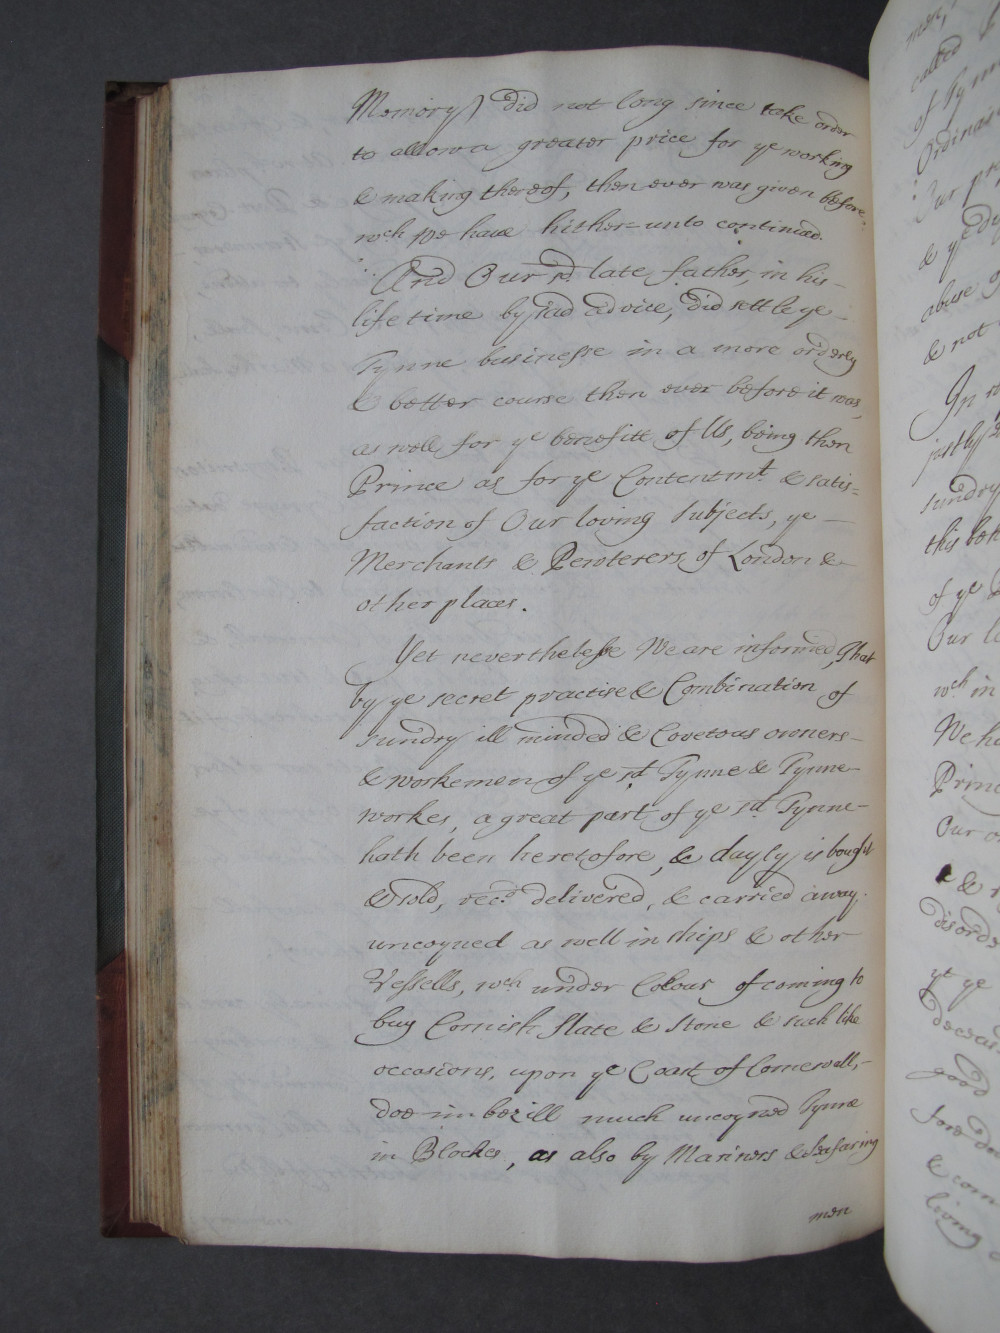 Memory) did not long since take order
to allow a greater price for ye working
& making thereof, then ever was given before.
wch We have hither=unto continued.
And Our sd. late father, in his
life time by sad advice, did settle ye
Tynne businesse in a more orderly
& better course then ever before it was,
as well for ye benefitt of Us, being then
Prince as for ye Contentmt. & satis=
faction of Our loving Subjects, ye
Merchants & Pewterers, of London &
other places.
Yet neverthelesse We are informed, That
by ye secret practise & Combination of
sundry ill minded & Covetous owners
& workemen of ye sd. Tynne & Tynne
workes, a great part of ye sd. Tynne
hath been heretofore, & dayly is bought
& sold, recd. delivered, & carried away
uncoyned as well in ships & other
Vessells, wch under Colour of coming to
buy Cornish slate & stone & such like
occasions, upon ye Coast of Cornewall,
doe imbezill much uncoyned Tynne
in Blockes, as also by Mariners & seafaring
men
men,
called
of Tynn
Ordinar
Our pr
& ye d
abuse o
& not
In
justly
sundry
this
of ye
Our l
wch in
We ha
Princ
Our o
& r
disord
yt ye
decea
good
fore
& com
living